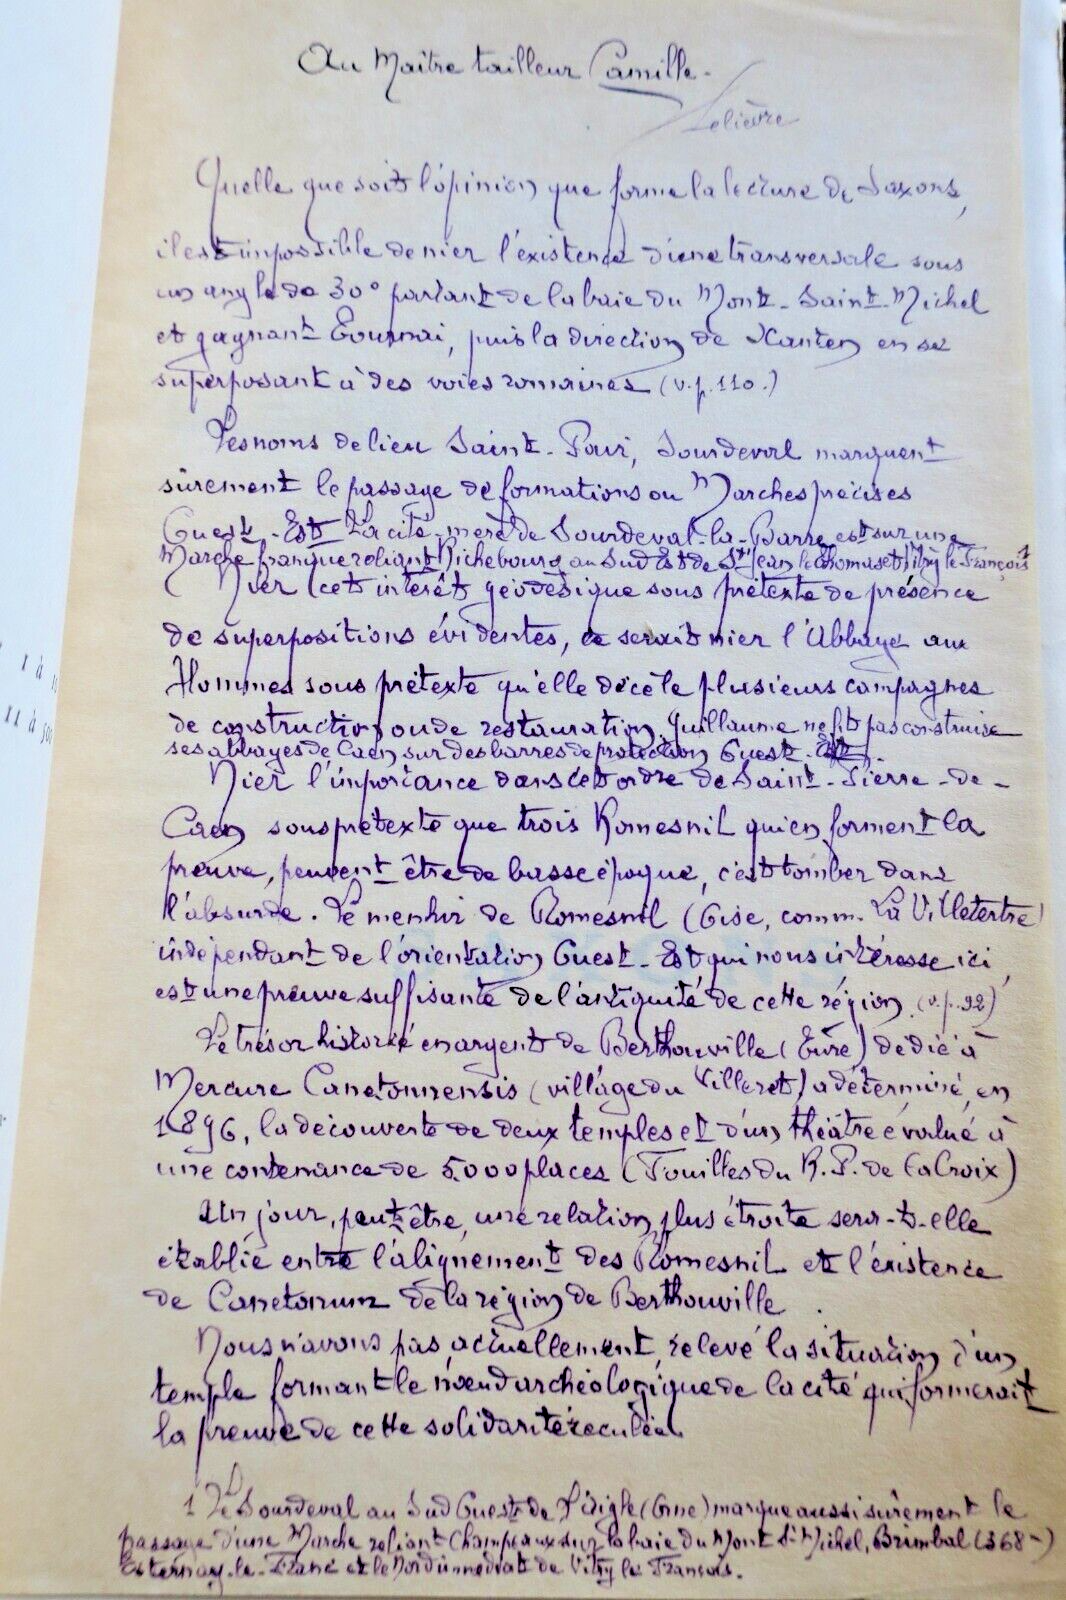 Au Maître tailleur Camille -
Lelièvre
Quelle que soit l'opinion que forme la lecture de Saxons,
il est impossible de nier l'existence d'une transversale sous
un angle de 30° partant de la baie du Mont-Saint-Michel
et gagnant Tournai, puis la direction de Xanten en se
superposant à des voies romaines (v.p. 110.)
Les noms de lieu Saint-Pair, Sourdeval marquent
sûrement le passage de formations ou Marches précises
Ouest-Est La cité-mère de Sourdeval-la-Barre est sur une
Marche franque reliant Richebourg au Sud Est de St Jean le Thomas et Vitry le François 1
Nier cet intérêt géodésique sous prétexte de présence
de superpositions évidentes, ce serait nier l'Abbaye aux
Hommes sous prétexte qu'elle décèle plusieurs campagnes
de construction ou de restauration. Guillaume ne fit pas construire
ses abbayes de Caen sur des barres de protection Ouest-Est.
Nier l'importance dans cet ordre de Saint-Pierre-de-
Caen sous prétexte que trois Romesnil qui en forment la
preuve, peuvent être de basse époque, c'est tomber dans
l'absurde. Le menhir de Romesnil (Oise, comm. La Villetertre)
indépendant de l'orientation Ouest-Est qui nous intéresse ici,
est une preuve suffisante de l'antiquité de cette région. (v.p. 92)
Le trésor historié en argent de Berthouville (Eure) dédié à
Mercure Canetonnensis (village du Villeret) a déterminé, en
1896, la découverte de deux temples et d'un théâtre évalué à
une contenance de 5.000 places (Fouilles du R.P. de la Croix)
Un jour, peut être, une relation plus étroite sera-t-elle
établie entre l'alignement des Romesnil et l'existence
de Canetonum de la région de Berthouville.
Nous n'avons pas actuellement relevé la situation d'un
temple formant le nœud archéologique de la cité qui formerait
la preuve de cette solidarité reculée.
1 Le Sourdeval au Sud Ouest de l'Aigle (Orne) marque aussi sûrement le
passage d'une Marche reliant Champeaux sur la baie du Mont St Michel, Brimbal (368-)
Esternay-le-Franc et le Nord immédiat de Vitry le François.